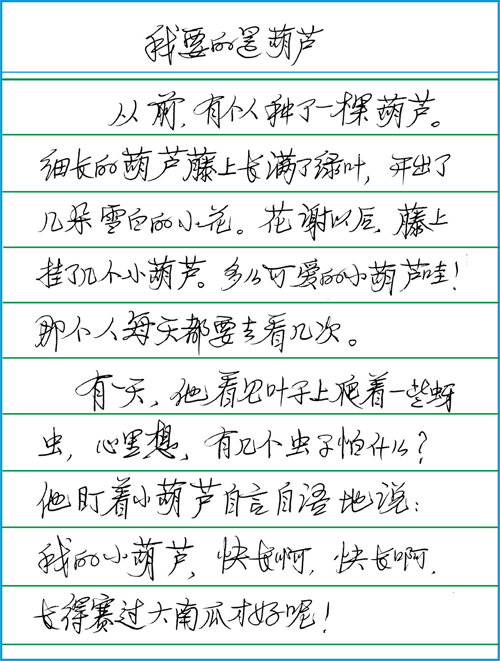 我要的是葫芦
从前,有个人种了一棵葫芦。
细长的葫芦藤上长满了绿叶,开出了
几朵雪白的小花。花谢以后,藤上
挂了几个小葫芦。多么可爱的小葫芦哇!
那个人每天都要去看几次。
有一天,他看见叶子上爬着一些蚜
虫,心里想,有几个虫子怕什么?
他盯着小葫芦自言自语地说:
我的小葫芦,快长啊,快长啊,
长得赛过大南瓜才好呢!